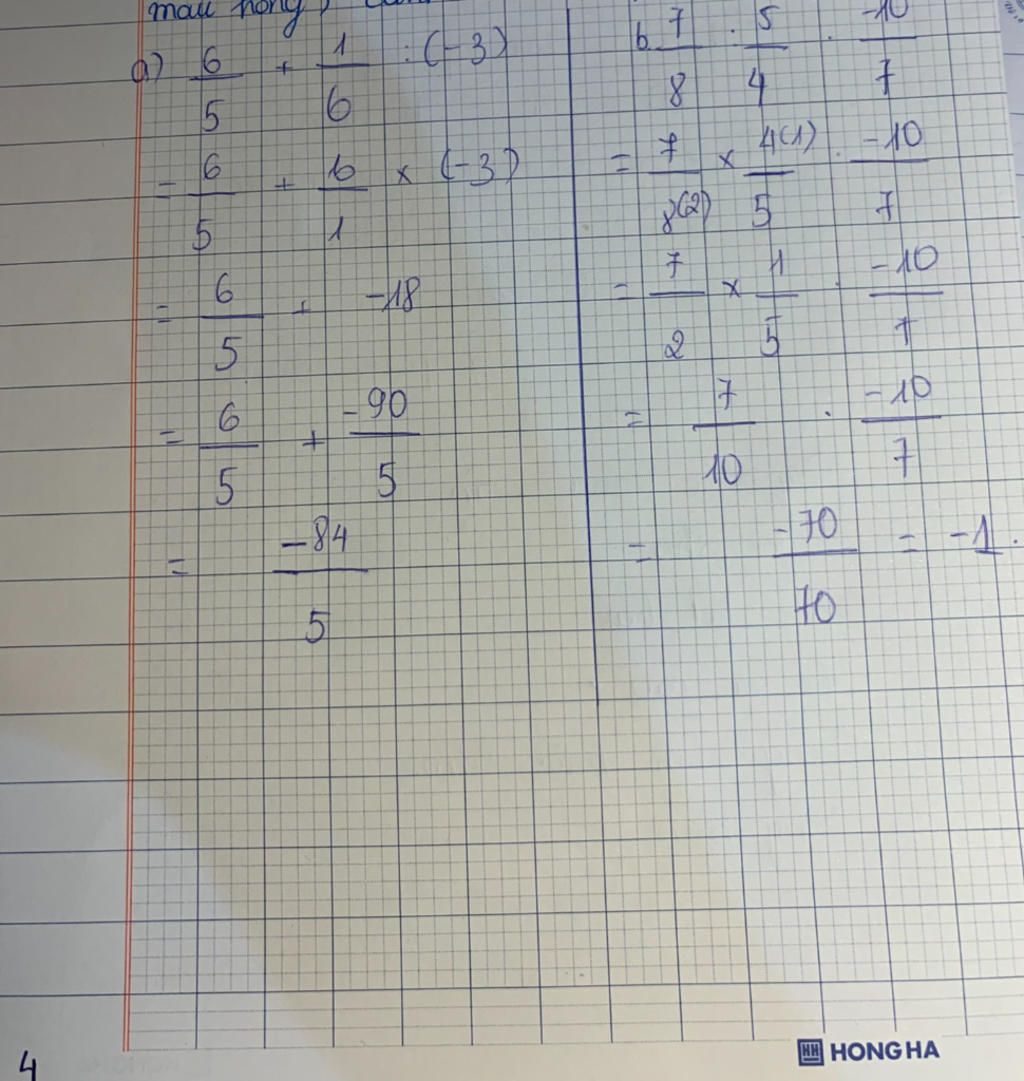 màu hồng,
a) 6/5 + 1/6 : (-3)
= 6/5 + 6/1 × (-3)
= 6/5 + -18
= 6/5 + -90/5
= -84/5
b. 7/8 : 5/4 . -10/7
= 7/8(2) × 4(1)/5 . -10/7
= 7/2 × 1/5 . -10/7
= 7/10 . -10/7
= -70/70 = -1.
4
HH HONG HA